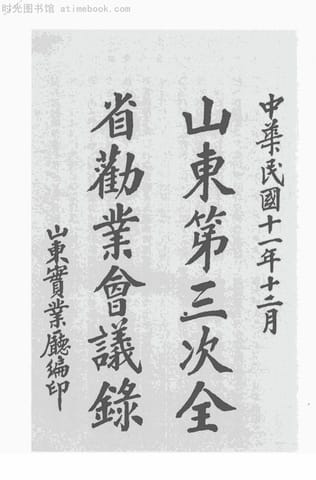 时光图书馆 atimebook.com
中華民國十一年十二月
山東第三次全
省勸業會議錄
山東實業廳編印